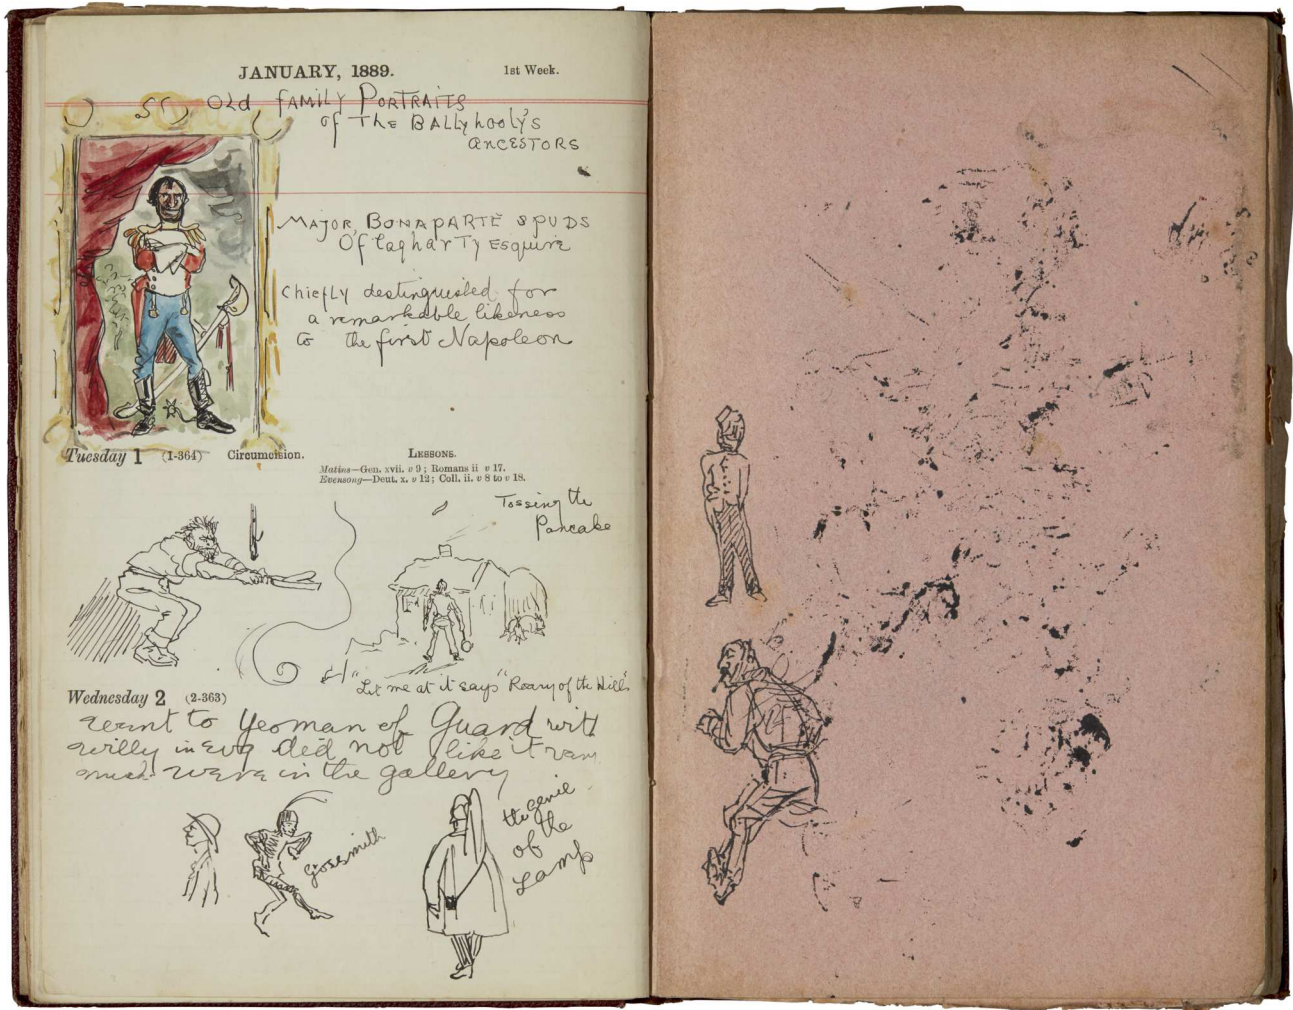 JANUARY, 1889. 1st Week.
Old FAMILY PORTRAITS
of The BALLYhooly's
ANCESTORS
MAJOR BONAPARTE SPUDS
O'flagharTy Esquire
Chiefly destinguished for
a remarkable likeness
to the first Napoleon
Tuesday 1 (1-364) Circumcision.
LESSONS.
Matins—Gen. xvii. v 9; Romans ii v 17.
Evensong—Deut. x. v 12; Coll. ii. v 8 to v 18.
Tossing the
Pancake
"Let me at it says "Reary of the Hill"
Wednesday 2 (2-363)
went to Yeoman of Guard with
willy in Evg did not like it very
much were in the gallery
Grossmith
the genie
of the
Lamp